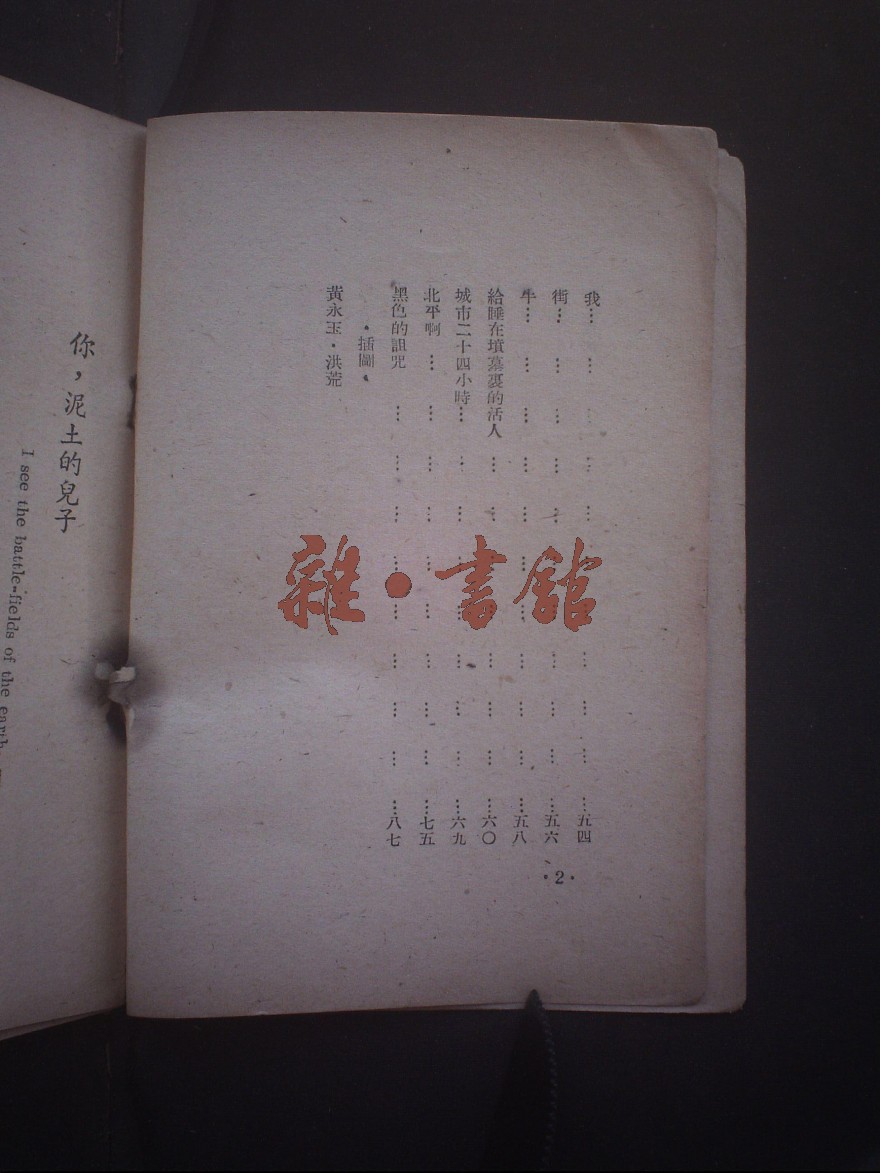 我…………………………五四
街…………………………五六
牛…………………………五八
給睡在墳墓裏的活人…………………………六〇
城市二十四小時…………………………六九
北平啊…………………………七五
黑色的詛咒…………………………八七
·插圖·
黃永玉·洪荒
·2·
你，泥土的兒子
I see the battle-fields of the earth
雜·書館